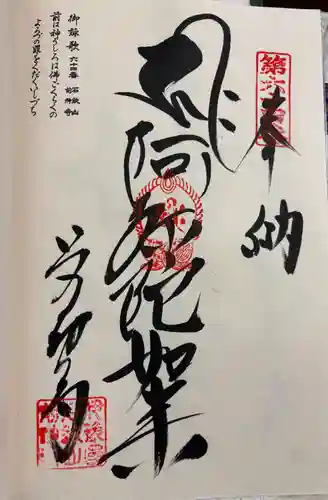 奉納
阿弥陀如来
前神寺
御詠歌 六十四番 石鈇山 前神寺
前は神うしろは佛ごくらくの
よろづの罪をくだくいしづち